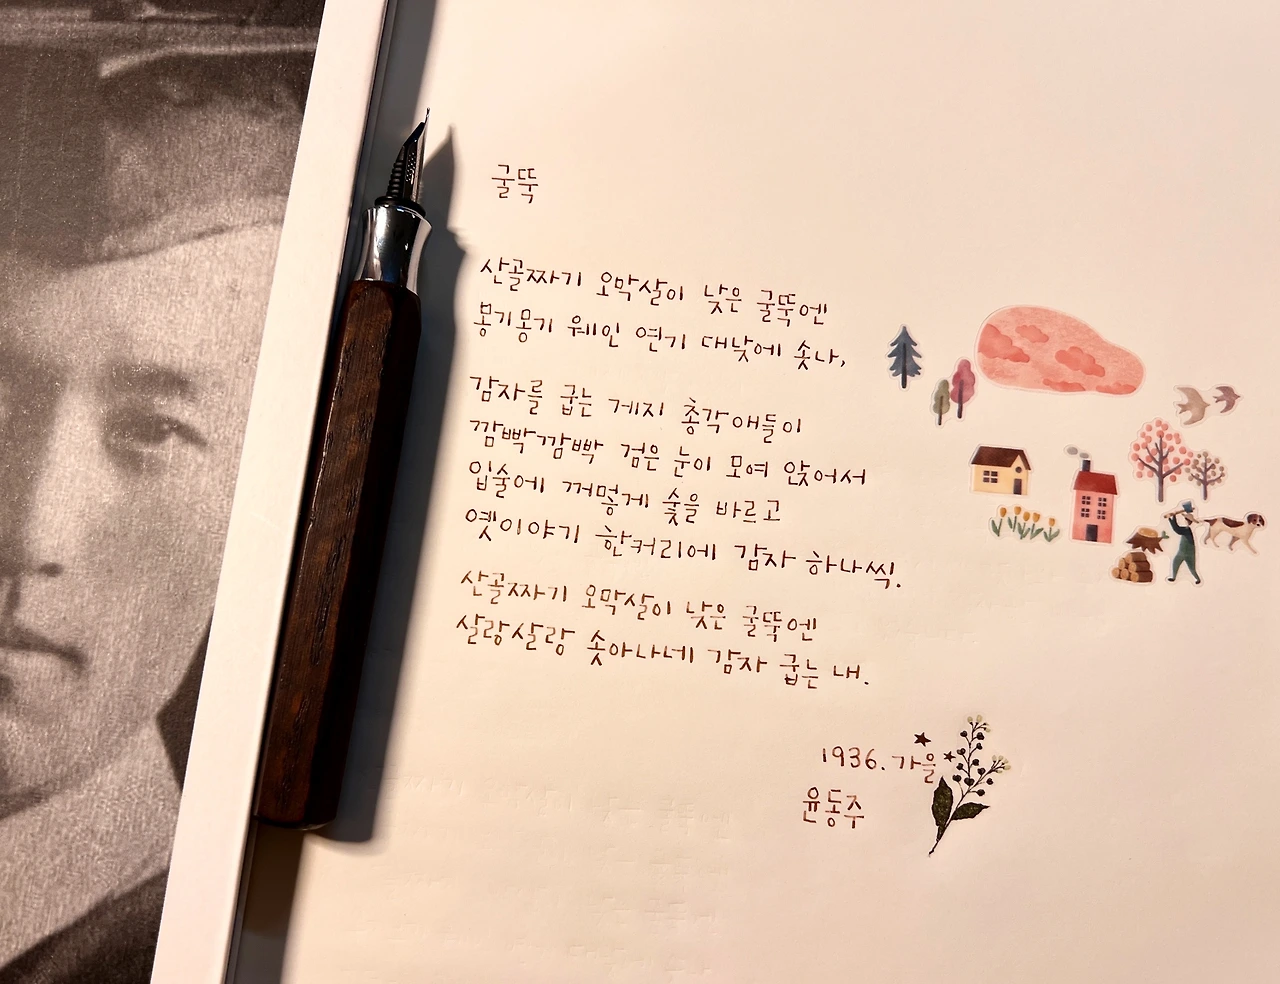 굴뚝
산골짜기 오막살이 낮은 굴뚝엔
몽기몽기 웨인 연기 대낮에 솟나,
감자를 굽는 게지 총각애들이
깜빡깜빡 검은 눈이 모여 앉어서
입술에 꺼멓게 숯을 바르고
옛이야기 한커리에 감자 하나씩.
산골짜기 오막살이 낮은 굴뚝엔
살랑살랑 솟아나네 감자 굽는 내.
1936. 가을
윤동주